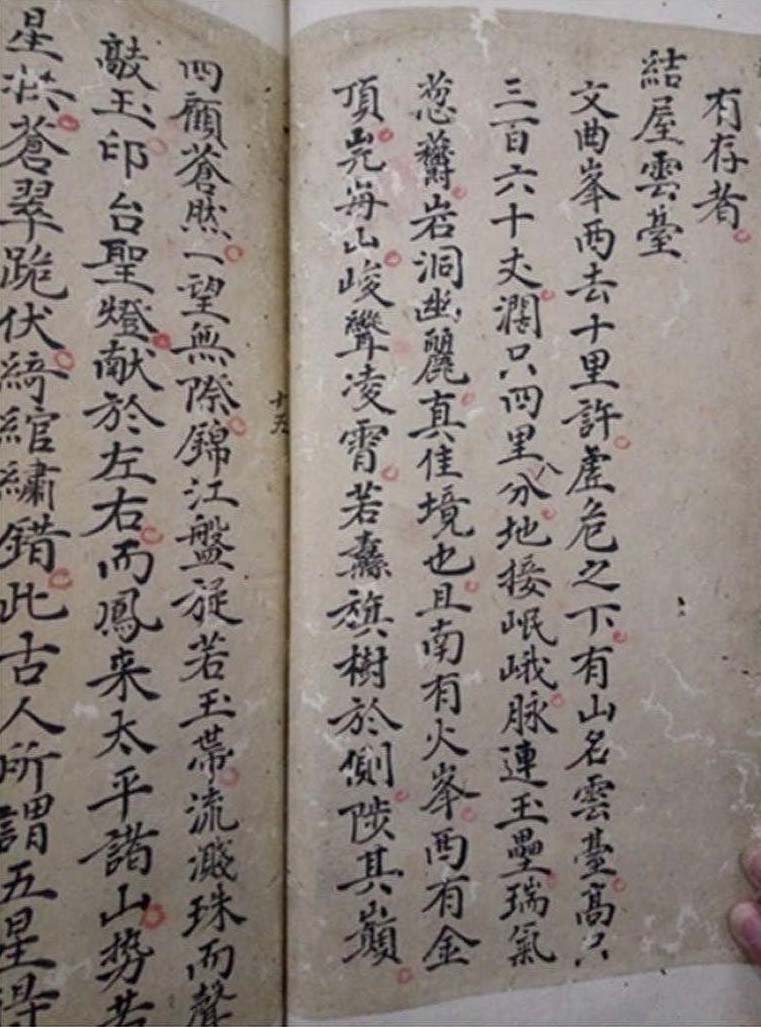 有存者
結屋雲臺
文曲峯西去十里許虛危之下有山名雲臺高只
三百六十丈濶只四里八分地接岷峨脉連玉壘瑞氣
葱欝岩洞幽麗真佳境也且南有火峯西有金
頂尭海山峻聳凌霄若纛旗樹於側陟其巔
四顧蒼然一望無際錦江盤旋若玉帶流濺珠而聲
敲玉印台聖燈献於左右而鳳来太平諸山势若
星拱蒼翠跪伏綺綰繡錯此古人所謂五星
十五